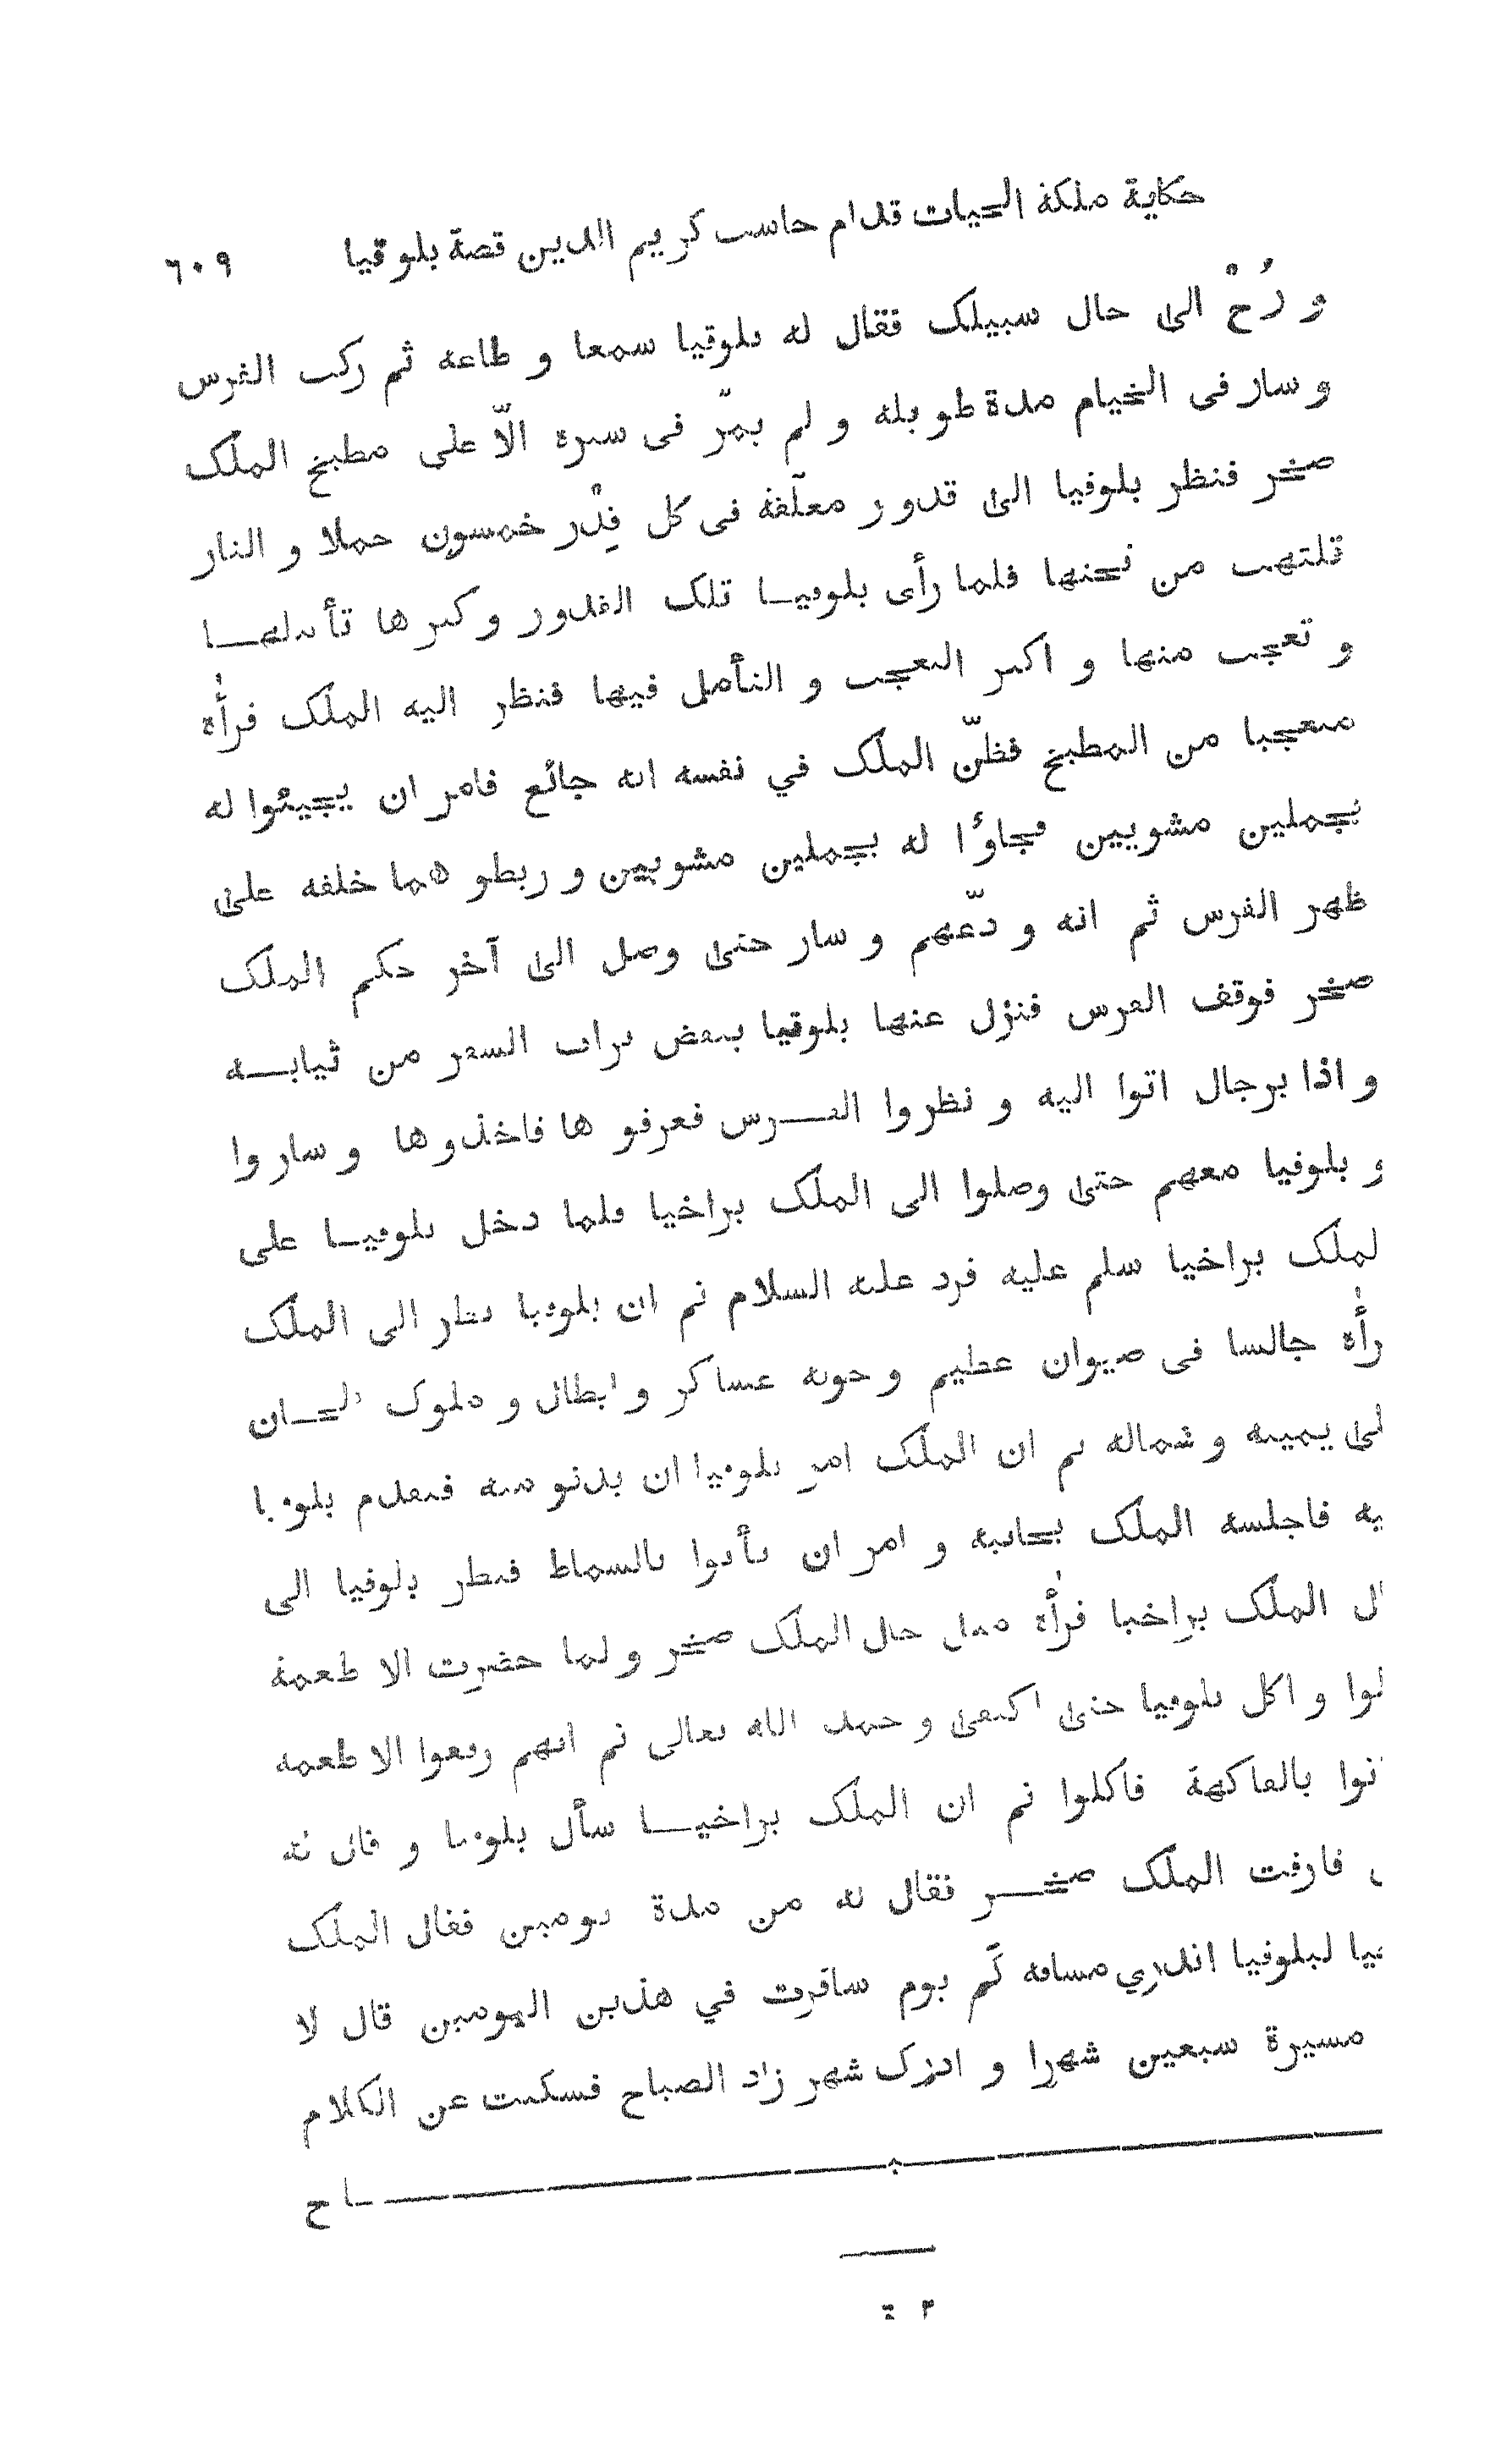 حكاية ملكة الحيات قدام حاسب كريم الدين قصة بلوقيا ٦٠٩
و رُحْ الى حال سبيلك فقال له بلوقيا سمعا و طاعة ثم ركب الفرس
و سار فى الخيام مدة طويلة و لم يمرّ فى سيره الّا على مطبخ الملك
صخر فنظر بلوقيا الى قدور معلّقة فى كل قِدْر خمسون حملا و النار
تلتهب من تحتها فلما رأى بلوقيا تلك القدور و كبرها تأملها
و تعجب منها و اكثر التعجب و التأمل فيها فنظر اليه الملك فرأه
متعجبا من المطبخ فظنّ الملك في نفسه انه جائع فامر ان يجيئوا له
بجملين مشويين فجاؤا له بجملين مشويين و ربطوهما خلفه على
ظهر الفرس ثم انه ودّعهم و سار حتى وصل الى آخر حكم الملك
صخر فوقف الفرس فنزل عنها بلوقيا ينفض تراب السفر من ثيابه
و اذا برجال اتوا اليه و نظروا الفرس فعرفوها فاخذوها و ساروا
و بلوقيا معهم حتى وصلوا الى الملك براخيا فلما دخل بلوقيا على
لملك براخيا سلم عليه فرد عليه السلام ثم ان بلوقيا نظر الى الملك
رأه جالسا فى صيوان عظيم و حوله عساكر و ابطال و ملوك الجان
لى يمينه و شماله ثم ان الملك امر بلوقيا ان يدنو منه فتقدم بلوقيا
يه فاجلسه الملك بجانبه و امر ان يأتوا بالسماط فنظر بلوقيا الى
ال الملك براخيا فرأه مثل حال الملك صخر و لما حضرت الاطعمة
لوا و اكل بلوقيا حتى اكتفى و حمد الله تعالى ثم انهم رفعوا الاطعمة
اتوا بالفاكهة فاكلوا ثم ان الملك براخيا سأل بلوقيا و قال له
فارقت الملك صخر فقال له من مدة يومين فقال الملك
خيا لبلوقيا اتدري مسافة كَم يوم سافرت في هذين اليومين قال لا
مسيرة سبعين شهرا و ادرك شهرزاد الصباح فسكتت عن الكلام
ـاح